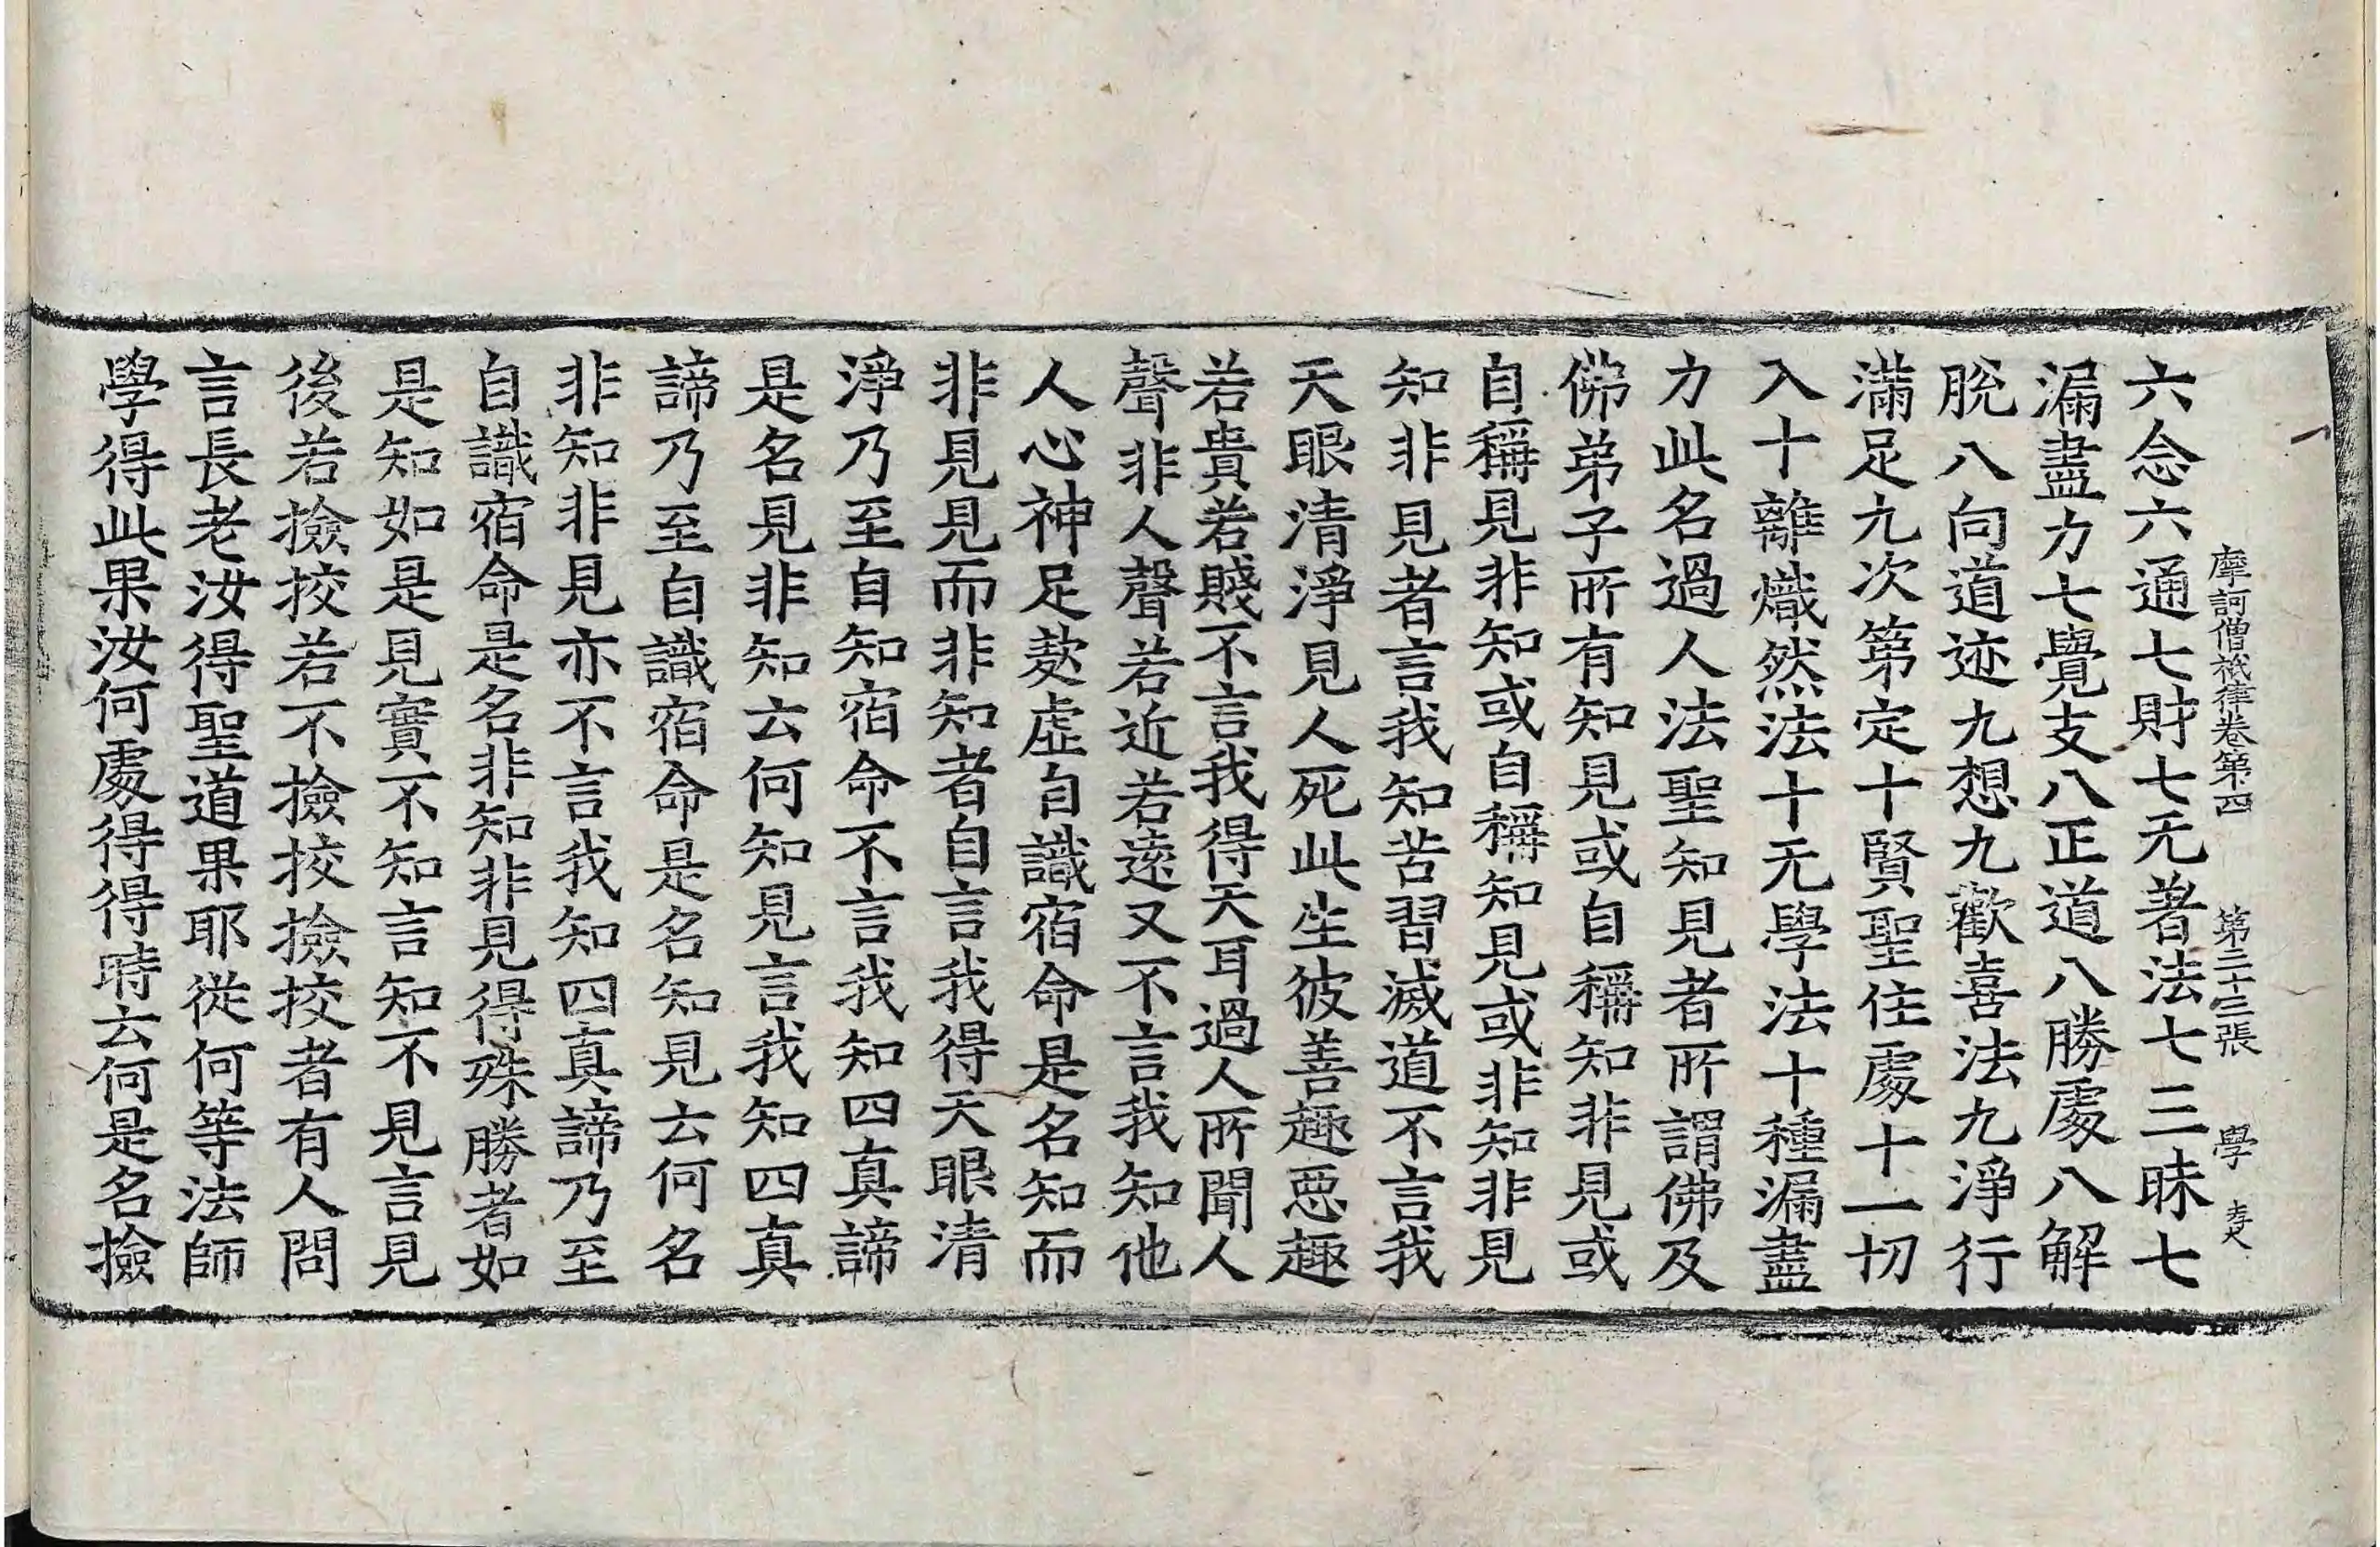 摩訶僧祇律卷第四 第二十三張 學
六念六通七財七无著法七三昧七
漏盡力七覺支八正道八勝處八解
脫八向道迹九想九歡喜法九淨行
滿足九次第定十賢聖住處十一切
入十離熾然法十无學法十種漏盡
力此名過人法聖知見者所謂佛及
佛弟子所有知見或自稱知非見或
自稱見非知或自稱知見或非知非見
知非見者言我知苦習滅道不言我
天眼清淨見人死此生彼善趣惡趣
若貴若賤不言我得天耳過人所聞人
聲非人聲若近若遠又不言我知他
人心神足𣣋虛自識宿命是名知而
非見見而非知者自言我得天眼清
淨乃至自知宿命不言我知四真諦
是名見非知云何知見言我知四真
諦乃至自識宿命是名知見云何名
非知非見亦不言我知四真諦乃至
自識宿命是名非知非見得殊勝者如
是知如是見實不知言知不見言見
後若撿挍若不撿挍撿挍者有人問
言長老汝得聖道果耶從何等法師
學得此果汝何處得得時云何是名撿